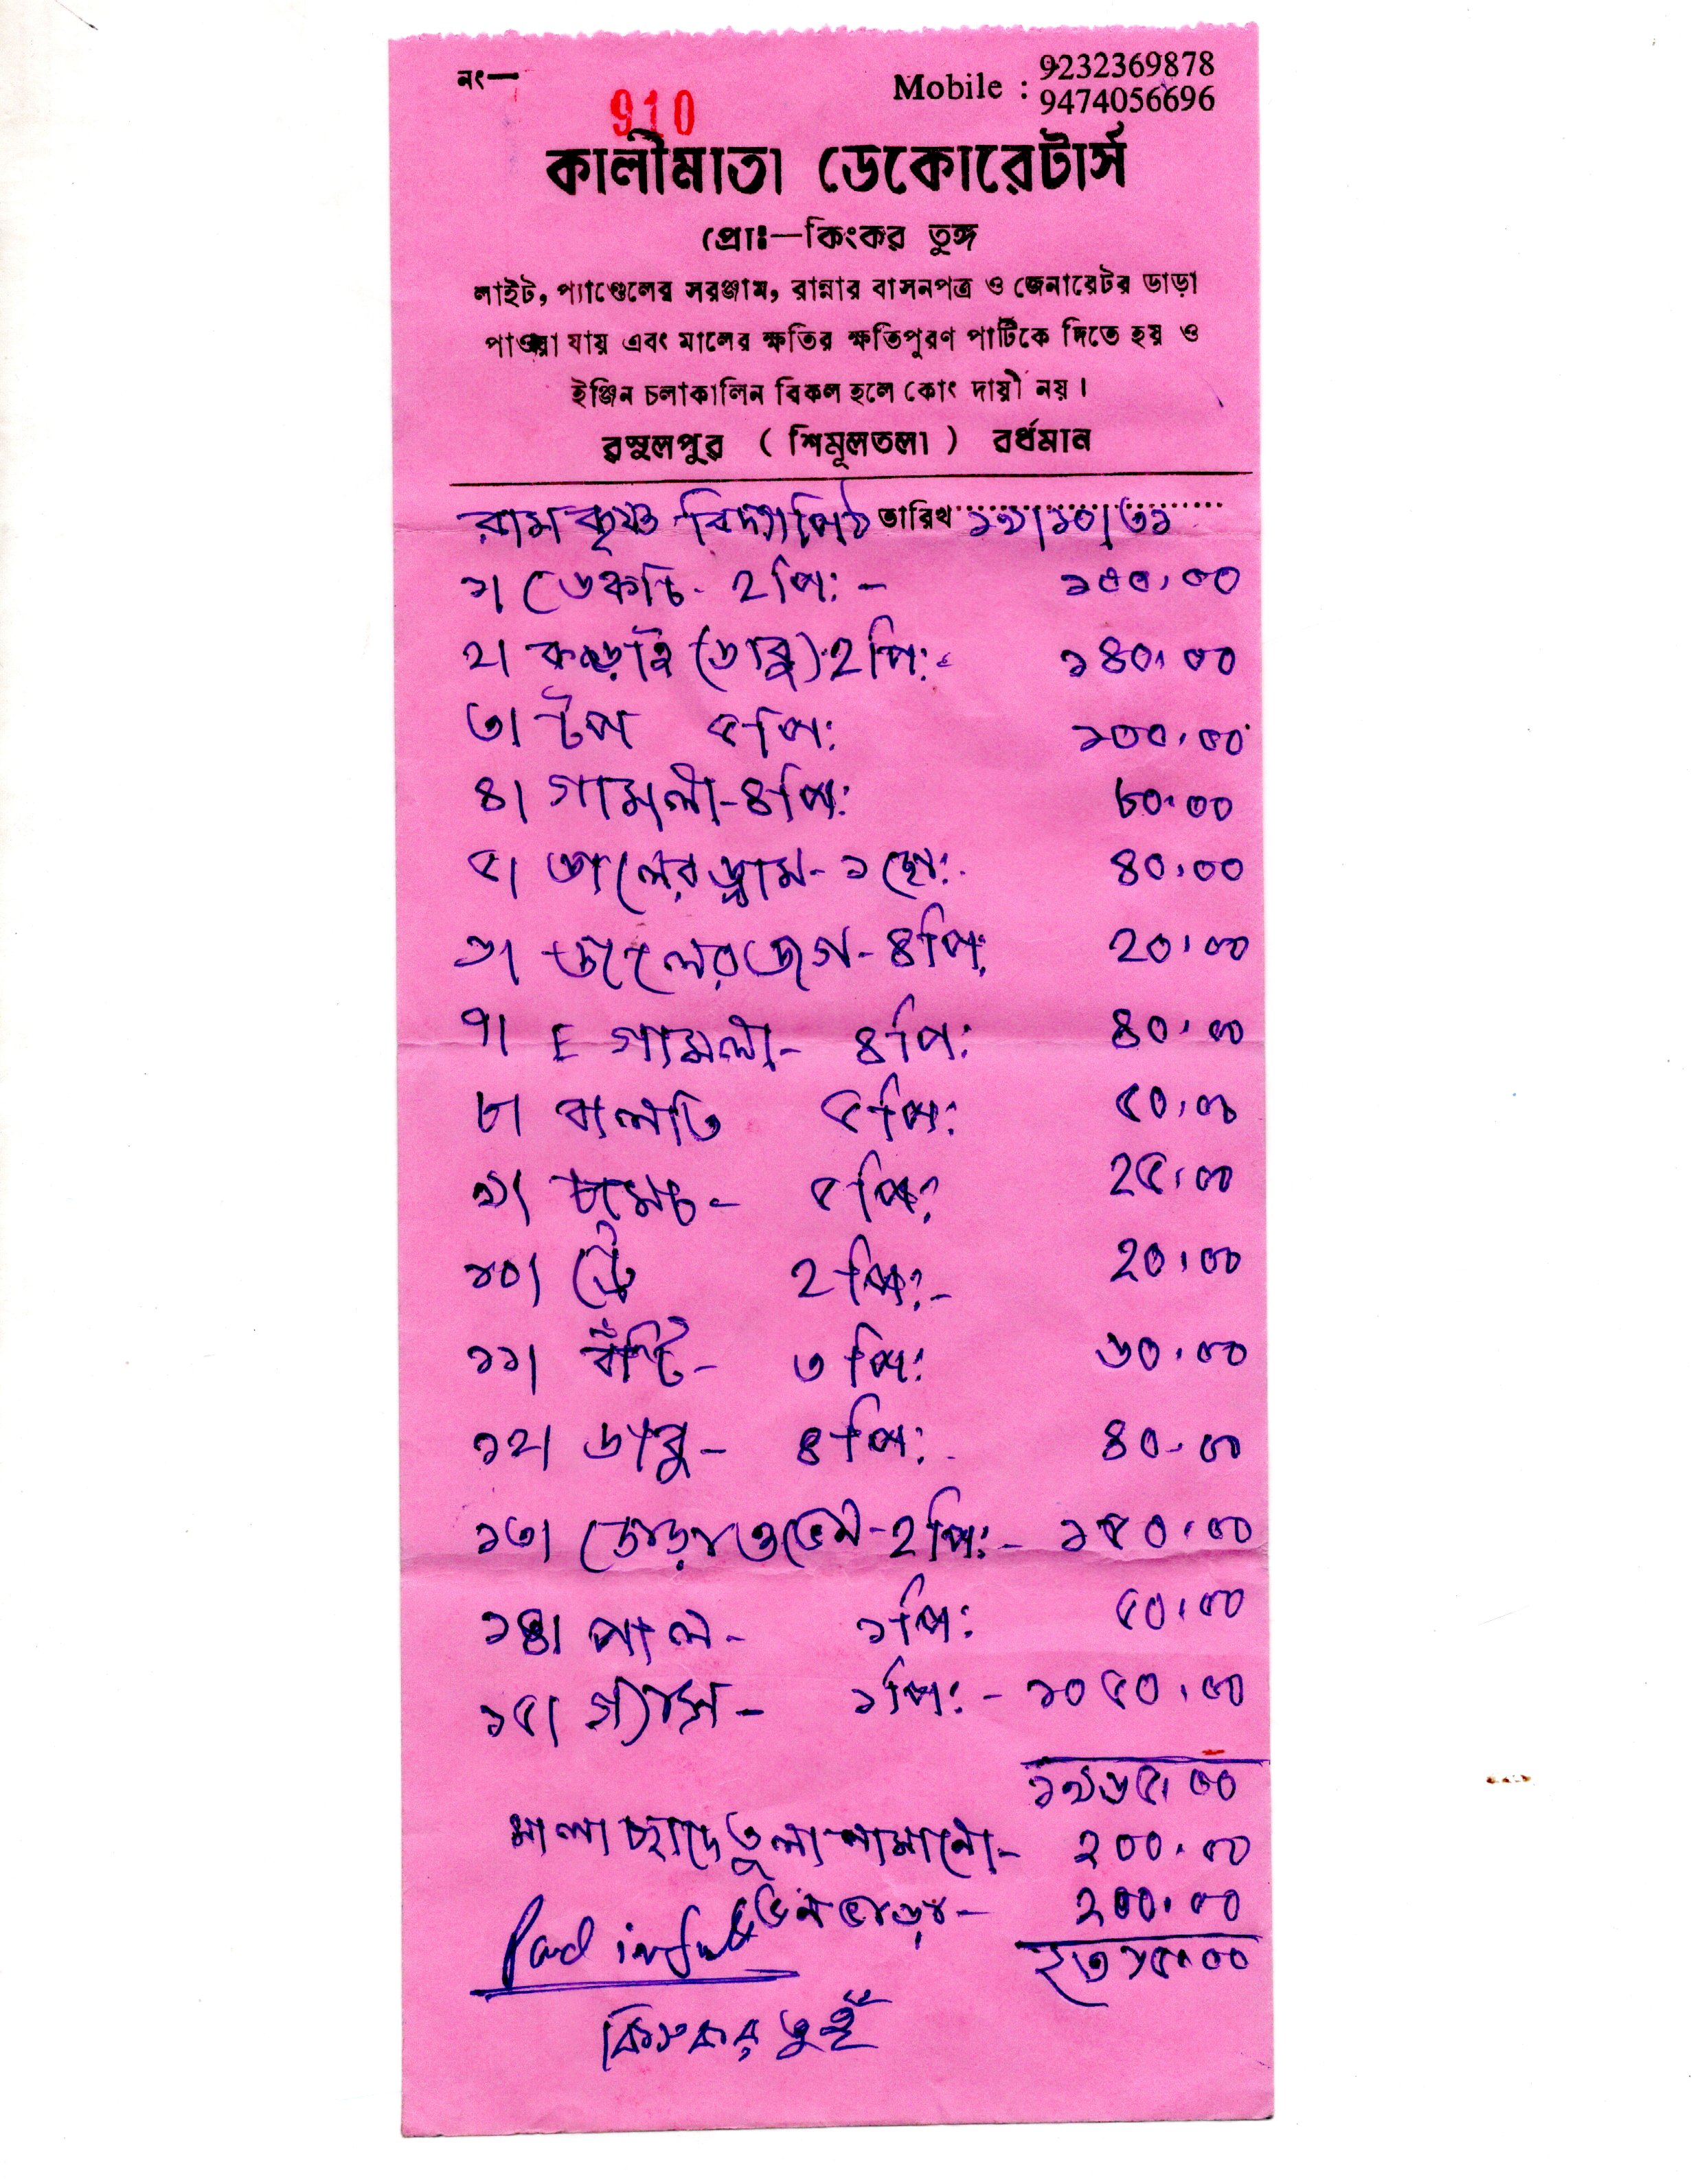 নং— 910 Mobile : 9232369878
9474056696
কালীমাতা ডেকোরেটার্স
প্রোঃ—কিংকর তুঙ্গ
লাইট, প্যাণ্ডেলের সরঞ্জাম, রান্নার বাসনপত্র ও জেনারেটর ভাড়া
পাওয়া যায় এবং মালের ক্ষতির ক্ষতিপুরণ পার্টিকে দিতে হয় ও
ইঞ্জিন চলাকালিন বিকল হলে কোং দায়ী নয়।
রসুলপুর ( শিমূলতলা ) বর্ধমান
রামকৃষ্ণ বিদ্যাপিঠ তারিখ ১৯|১০|৩১
১। ডেকচি - ২ পি: - ১০০.০০
২। কড়াই (ডাবু) ২ পি: - ১৪০.০০
৩। টপ ৫ পি: ১০০.০০
৪। গামলা - ৪ পি: ৮০.০০
৫। জালের ড্রাম - ১ টো: ৪০.০০
৬। জলের জগ - ৪ পি: ২০.০০
৭। E গামলা - ৪ পি: ৪০.০০
৮। বালতি ৫ পি: ৫০.০০
৯। চামচ - ৫ পি: ২৫.০০
১০। ট্রে ২ পি: - ২০.০০
১১। বঁটি - ৩ পি: ৬০.০০
১২। ডাবু - ৪ পি: ৪০.০০
১৩। জোড়া ওভেন - ২ পি: - ১৫০.০০
১৪। পাল - ১ পি: ৫০.০০
১৫। গ্যাস - ১ পি: - ১০৫০.০০
১৯৬৫.০০
মালা ছাদে তুলা নামানো - ২০০.০০
ভেন ভাড়া - ২০০.০০
Paid in full ২৩৬৫.০০
কিংকর তুঙ্গ